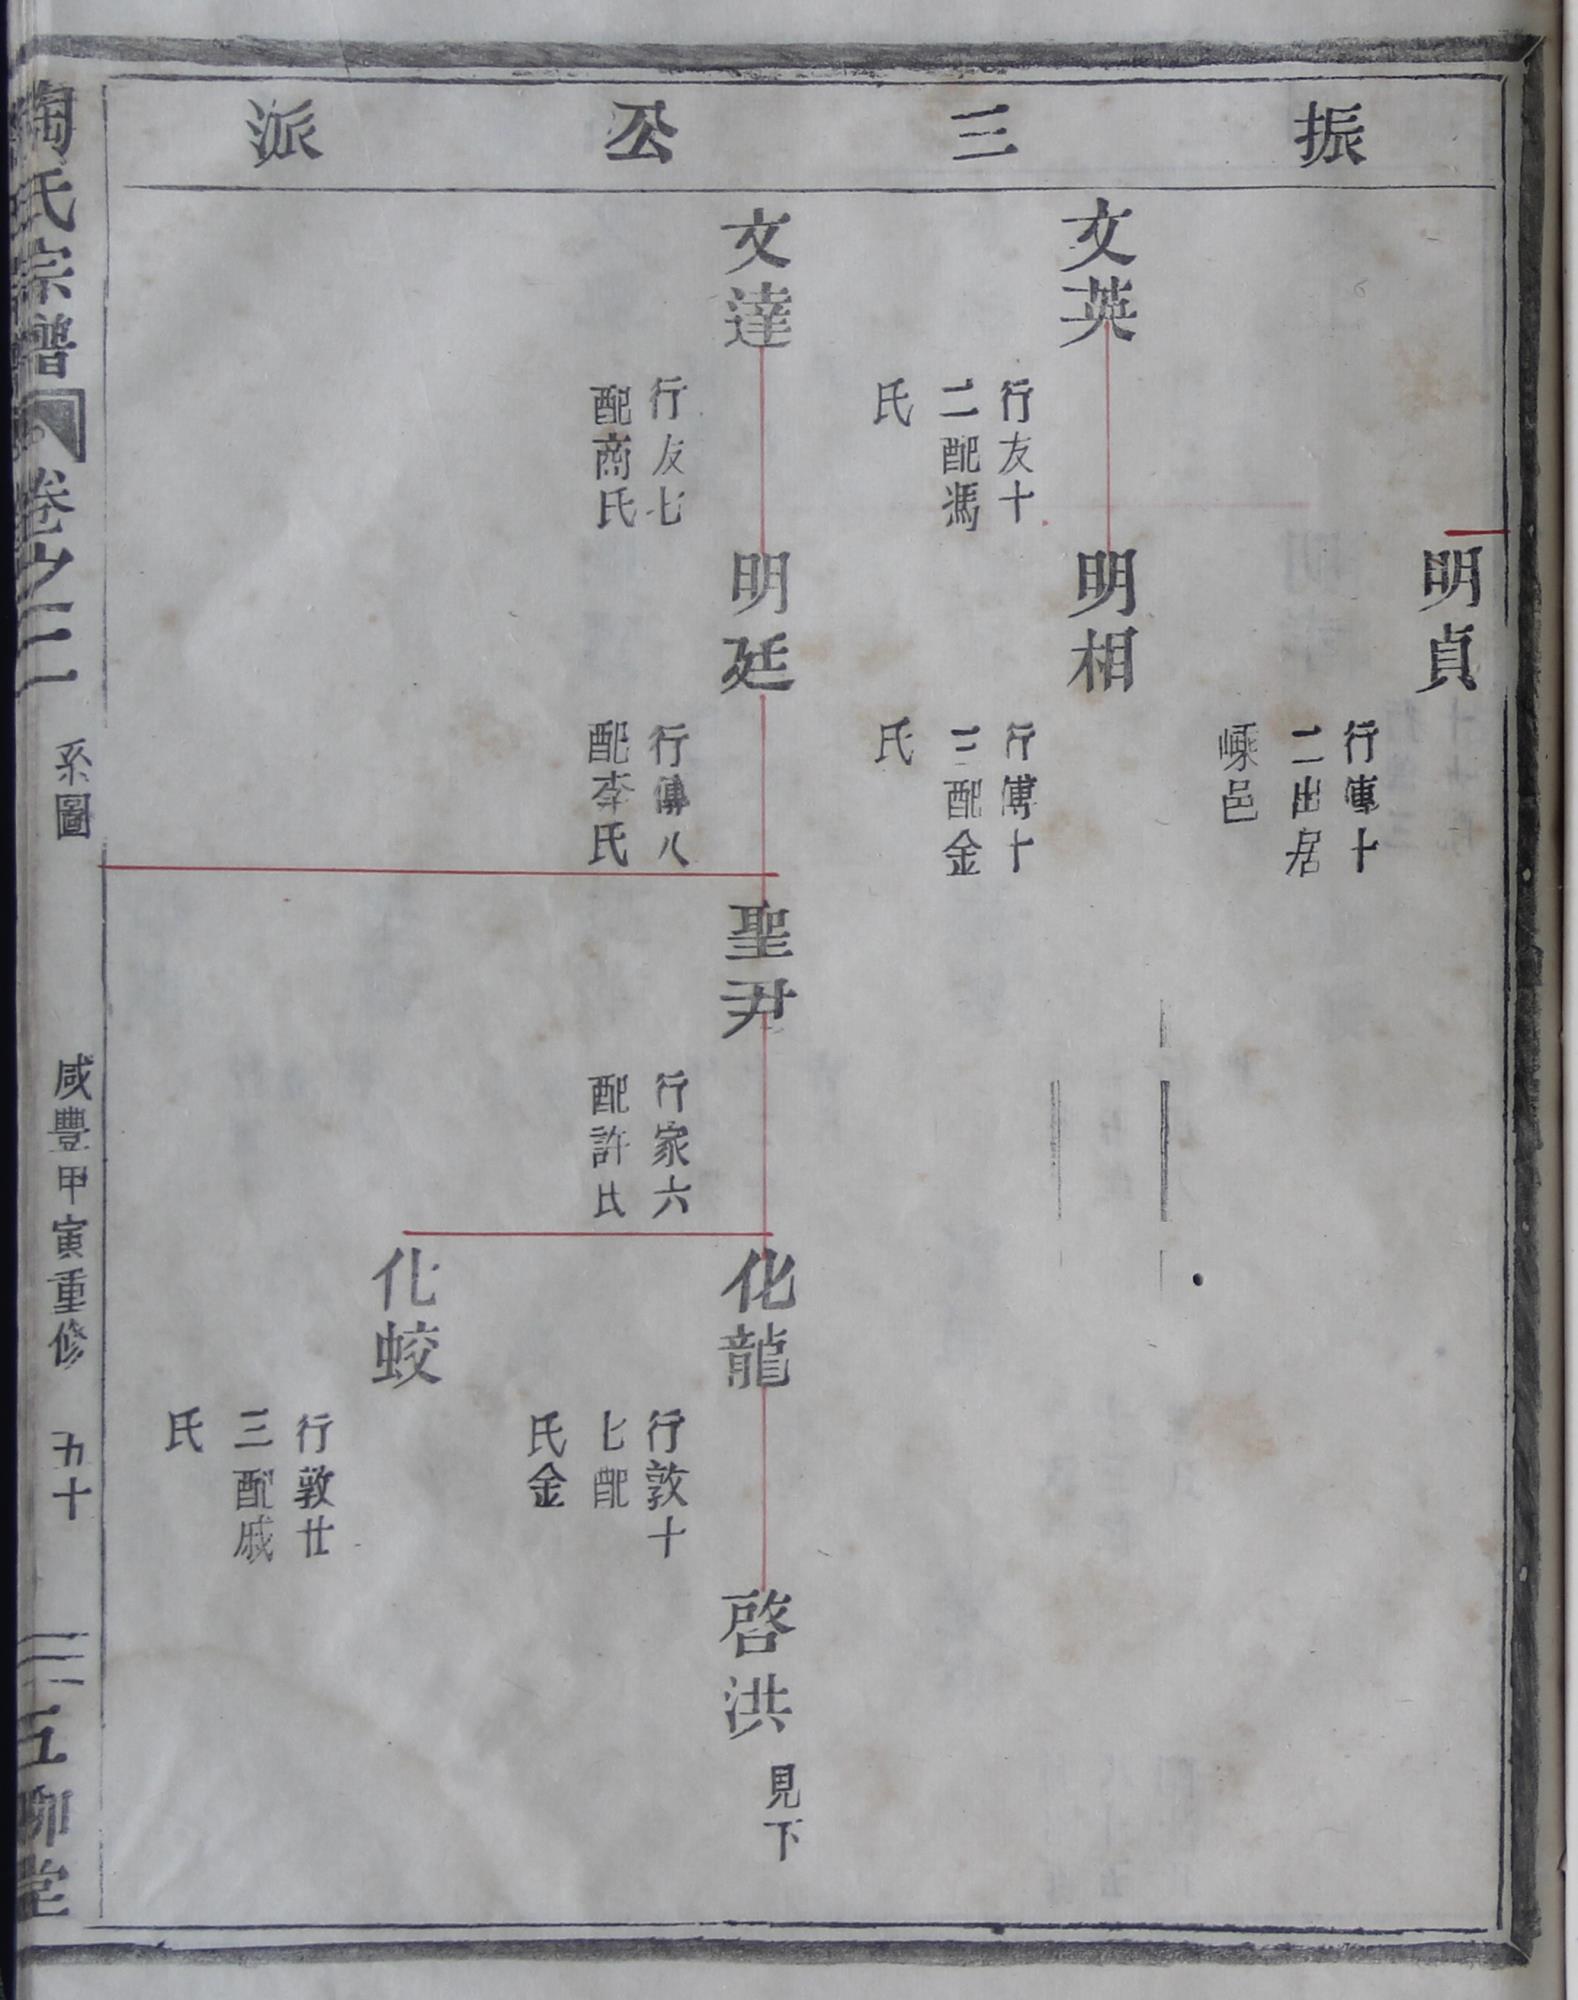 振三公派
明貞
行傳十
二出居
嵊邑
文英
行友十
二配馮
氏
明相
行傳十
三配金
氏
文達
行友七
配商氏
明廷
行傳八
配李氏
聖尹
行家六
配許氏
化龍
行敦十
七配
氏金
啓洪
見下
化蛟
行敦廿
三配戚
氏
陶氏宗譜
卷之二
系圖
咸豐甲寅重修
五十
五柳堂